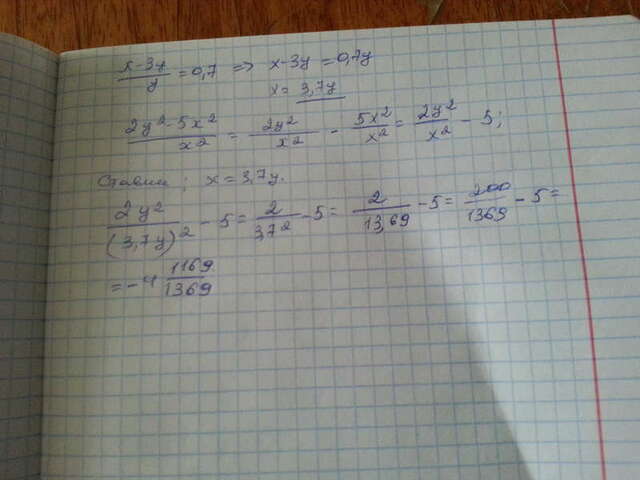 (x-3y)/y = 0,7 => x-3y = 0,7y
x = 3,7y
(2y²-5x²)/x² = 2y²/x² - 5x²/x² = 2y²/x² - 5;
Ставим; x = 3,7y.
2y²/(3,7y)² - 5 = 2/3,7² - 5 = 2/13,69 - 5 = 200/1369 - 5 =
= -4 1169/1369